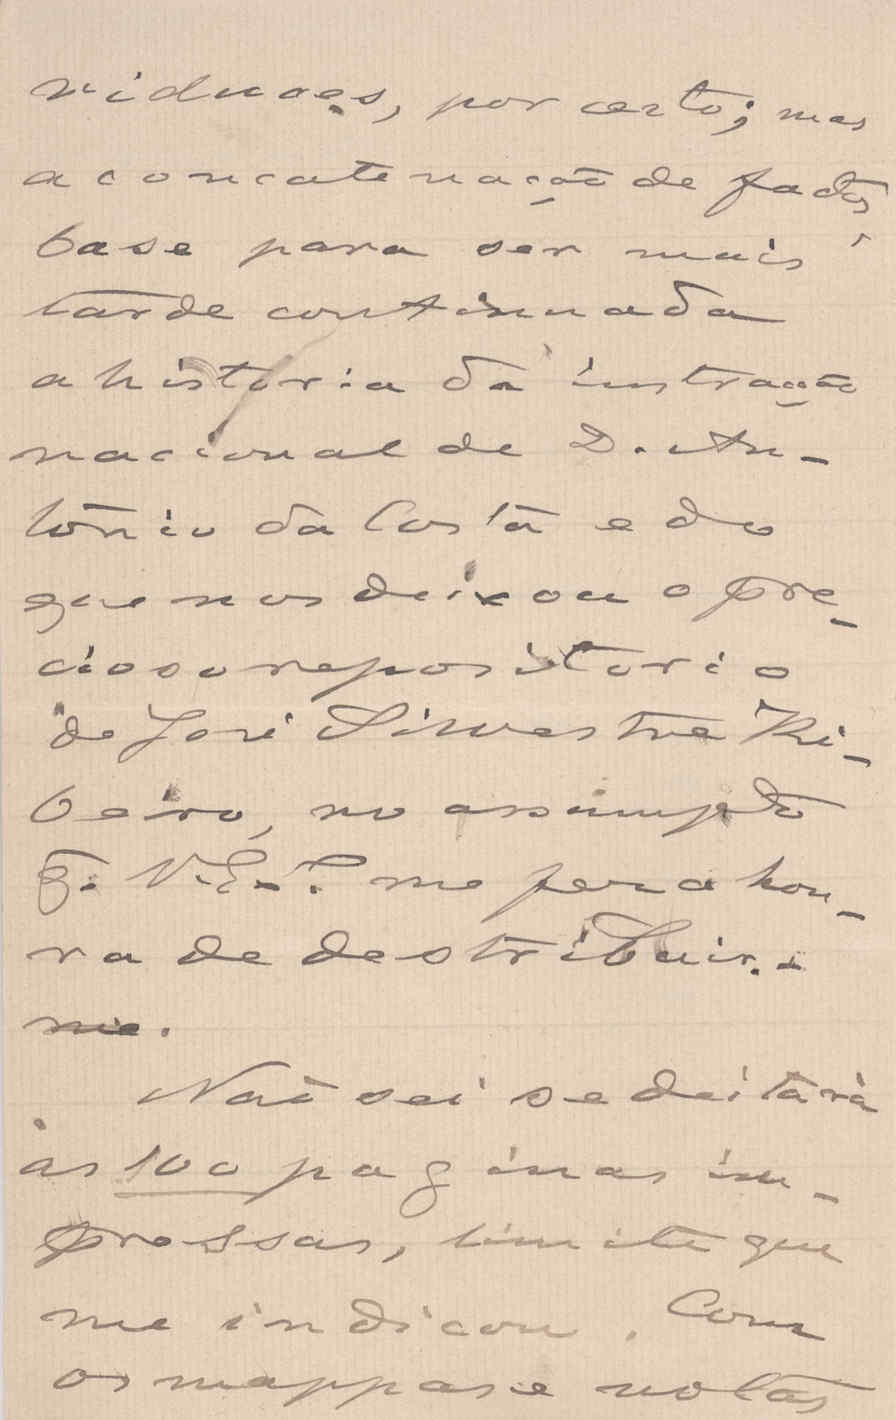 viduaes, por certo; mas
a concatenação de factos,
base para ser mais
tarde continuada
a historia da instrução
nacional de D. An-
tónio da Costa e do
que nos deixou o pre-
cioso repositorio
de José Silvestre Ri-
beiro, no assumpto
q. V. E.
de destribuir-
me.
Não sei se deitará
ás 100 paginas im-
pressas, limite que
me indicou. Com
os mappas e notas